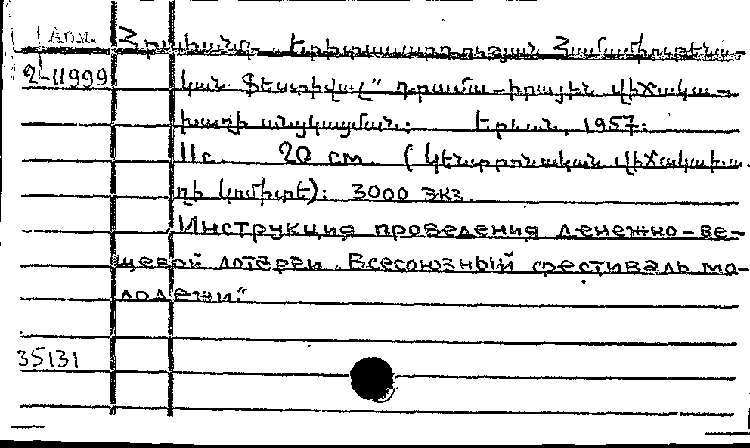 Арм.
2-11999
Հրահանգ- Երիտասարդության Համամիութենա-
կան ֆեստիվալ" դրամա-իրային վիճակա-
խաղի անցկացման: Երևան, 1957:
11с. 20 см. (Կենտրոնական վիճակախա-
ղի կոմիտե): 3000 экз.
Инструкция проведения денежно-ве-
щевой лотереи. Всесоюзный фестиваль мо-
лодежи."
35131